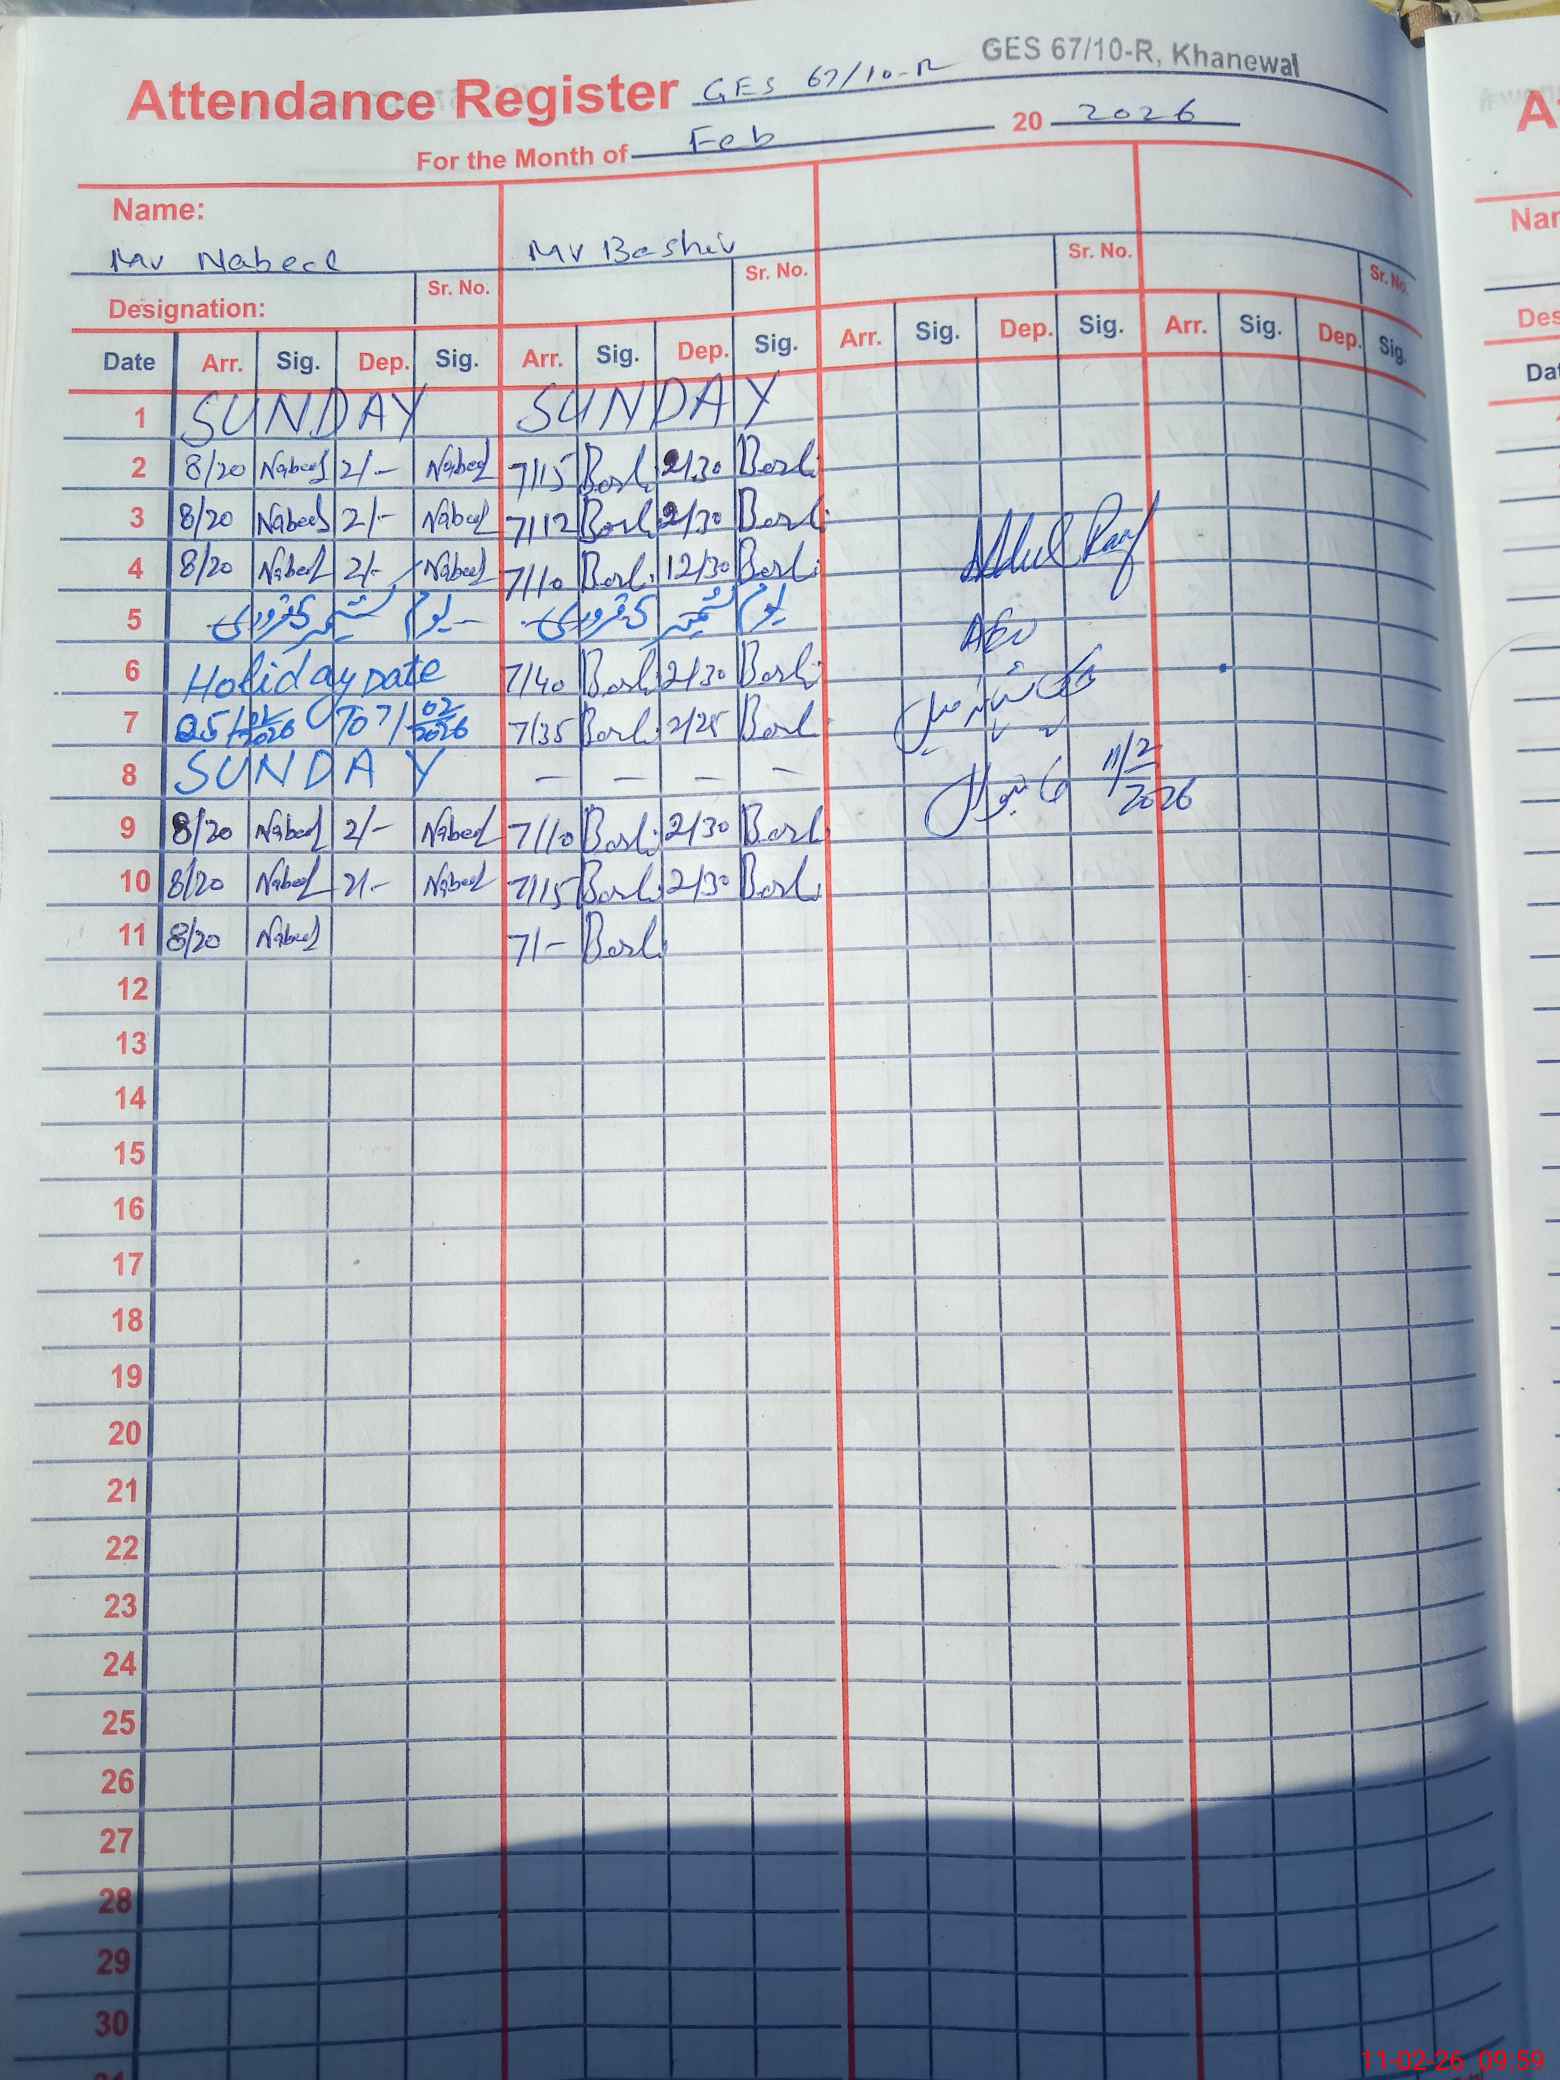 GES 67/10-R, Khanewal
Attendance Register GES 67/10-R
For the Month of Feb 20 2026
Name:
Mr Nabeel Mr Bashir
Sr. No. Sr. No. Sr. No. Sr. No.
Designation:
Date Arr. Sig. Dep. Sig. Arr. Sig. Dep. Sig. Arr. Sig. Dep. Sig. Arr. Sig. Dep. Sig.
1 SUNDAY SUNDAY
2 8/20 Nabeel 2/- Nabeel 7/15 2/30
3 8/20 Nabeel 2/- Nabeel 7/12 2/30
4 8/20 Nabeel 2/- Nabeel 7/10 12/30
Abdul Rauf
5 یوم کشمیر 5 فروری یوم کشمیر 5 فروری
AEO
6 Holiday Date 7/40 2/30
7 25/01/2026 To 7/02/2026 7/35 2/25
8 SUNDAY — — — —
11/2/2026
9 8/20 Nabeel 2/- Nabeel 7/10 2/30
10 8/20 Nabeel 2/- Nabeel 7/15 2/30
11 8/20 Nabeel 7/-
12
13
14
15
16
17
18
19
20
21
22
23
24
25
26
27
28
29
30
31
11-02-26 09:59
A
Nar
Des
Dat